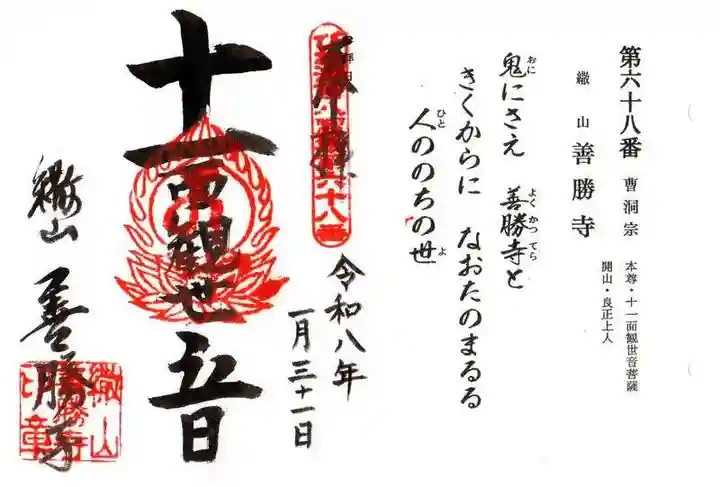 第六十八番 曹洞宗 本尊・十一面観世音菩薩
開山・良正上人
繖山 善勝寺
鬼にさえ 善勝寺と
おに よくかつてら
きくからに なおたのまるる
人ののちの世
ひと よ
奉拝
六十八番
令和八年
一月三十一日
十一面観世音
繖山 善勝寺
繖山
善勝寺
印章